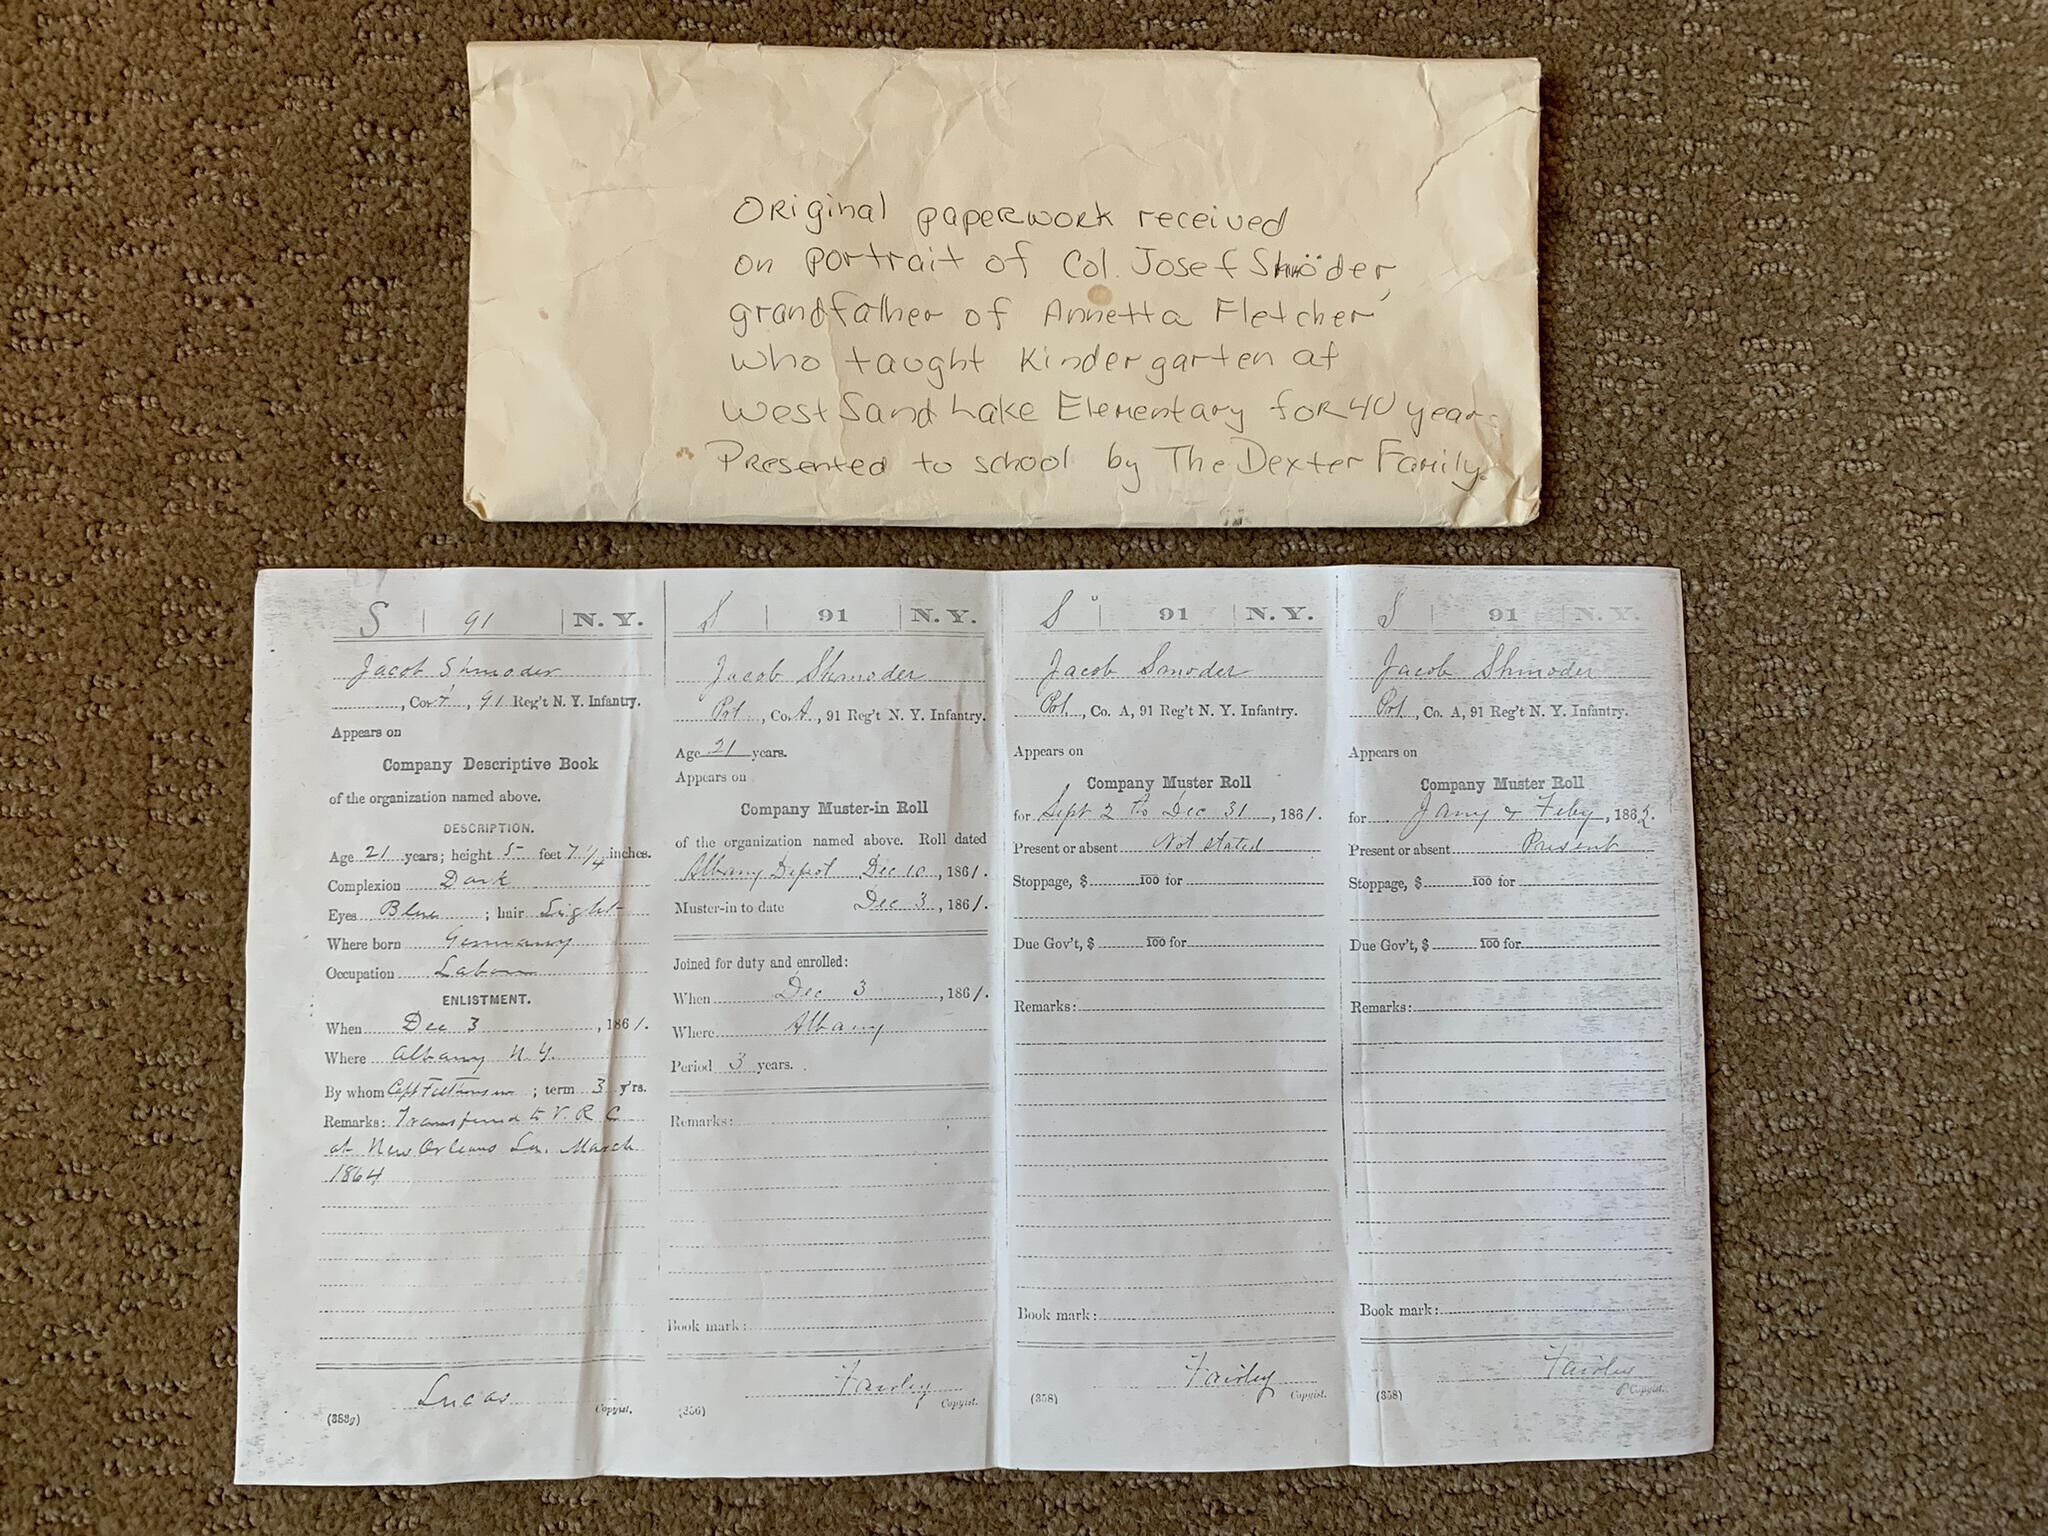 Original paperwork received
on portrait of Col. Josef Shmöder,
grandfather of Annetta Fletcher
who taught Kindergarten at
West Sand Lake Elementary for 40 years.
Presented to school by The Dexter Family.
S | 91 | N. Y.
Jacob Shmoder
, Co. A, 91 Reg't N. Y. Infantry.
Appears on
Company Descriptive Book
of the organization named above.
DESCRIPTION.
Age 21 years; height 5 feet 7 1/4 inches.
Complexion Dark
Eyes Blue ; hair Light
Where born Germany
Occupation Labor
ENLISTMENT.
When Dec 3, 1861.
Where Albany N. Y.
By whom Capt ; term 3 y'rs.
Remarks: Transferred to V. R. C.
at New Orleans La. March
1864
Lucas
Copyist.
(383g)
S | 91 | N. Y.
Jacob Shmoder
Pvt., Co. A, 91 Reg't N. Y. Infantry.
Age 21 years.
Appears on
Company Muster-in Roll
of the organization named above. Roll dated
Albany Depot Dec 10, 1861.
Muster-in to date Dec 3, 1861.
Joined for duty and enrolled:
When Dec 3, 1861.
Where Albany
Period 3 years.
Remarks:
Book mark:
Fairley
Copyist.
(356)
S | 91 | N. Y.
Jacob Smoder
Pvt., Co. A, 91 Reg't N. Y. Infantry.
Appears on
Company Muster Roll
for Sept 2 to Dec 31, 1861.
Present or absent Not stated
Stoppage, $ 100 for
Due Gov't, $ 100 for
Remarks:
Book mark:
Fairley
Copyist.
(358)
S | 91 | N. Y.
Jacob Shmoder
Pvt., Co. A, 91 Reg't N. Y. Infantry.
Appears on
Company Muster Roll
for Jany & Feby, 1862.
Present or absent Present
Stoppage, $ 100 for
Due Gov't, $ 100 for
Remarks:
Book mark:
Fairley
Copyist.
(358)